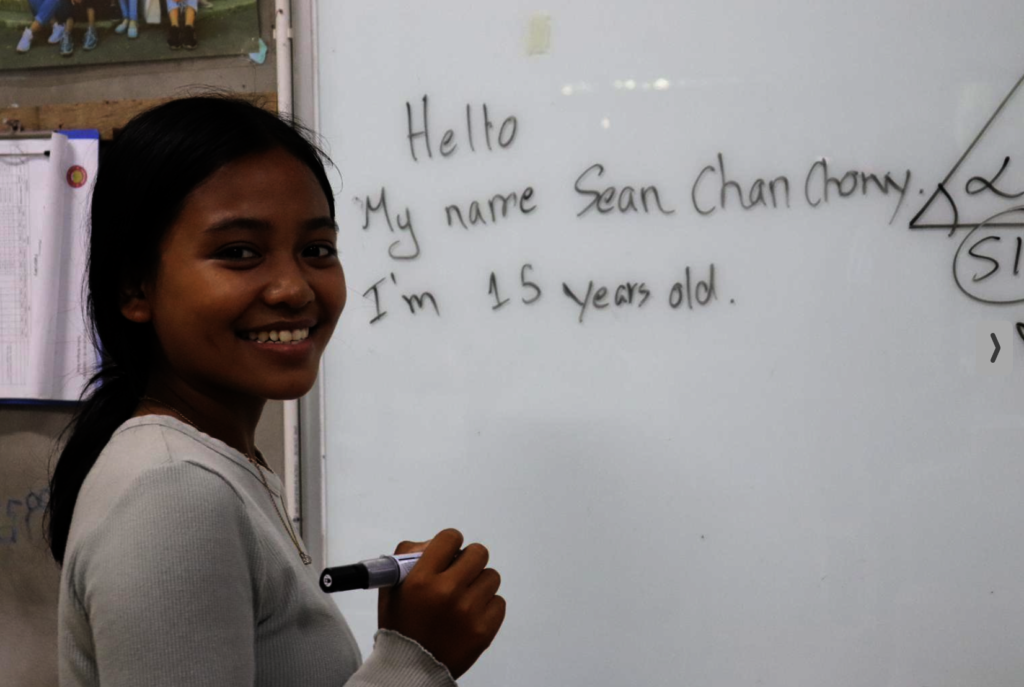 Hello
My name Sean Chan Chorny.
I'm 15 years old.
α
SI